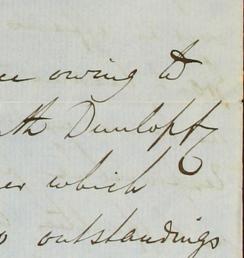 owing to
Dunloff
which
outstandings